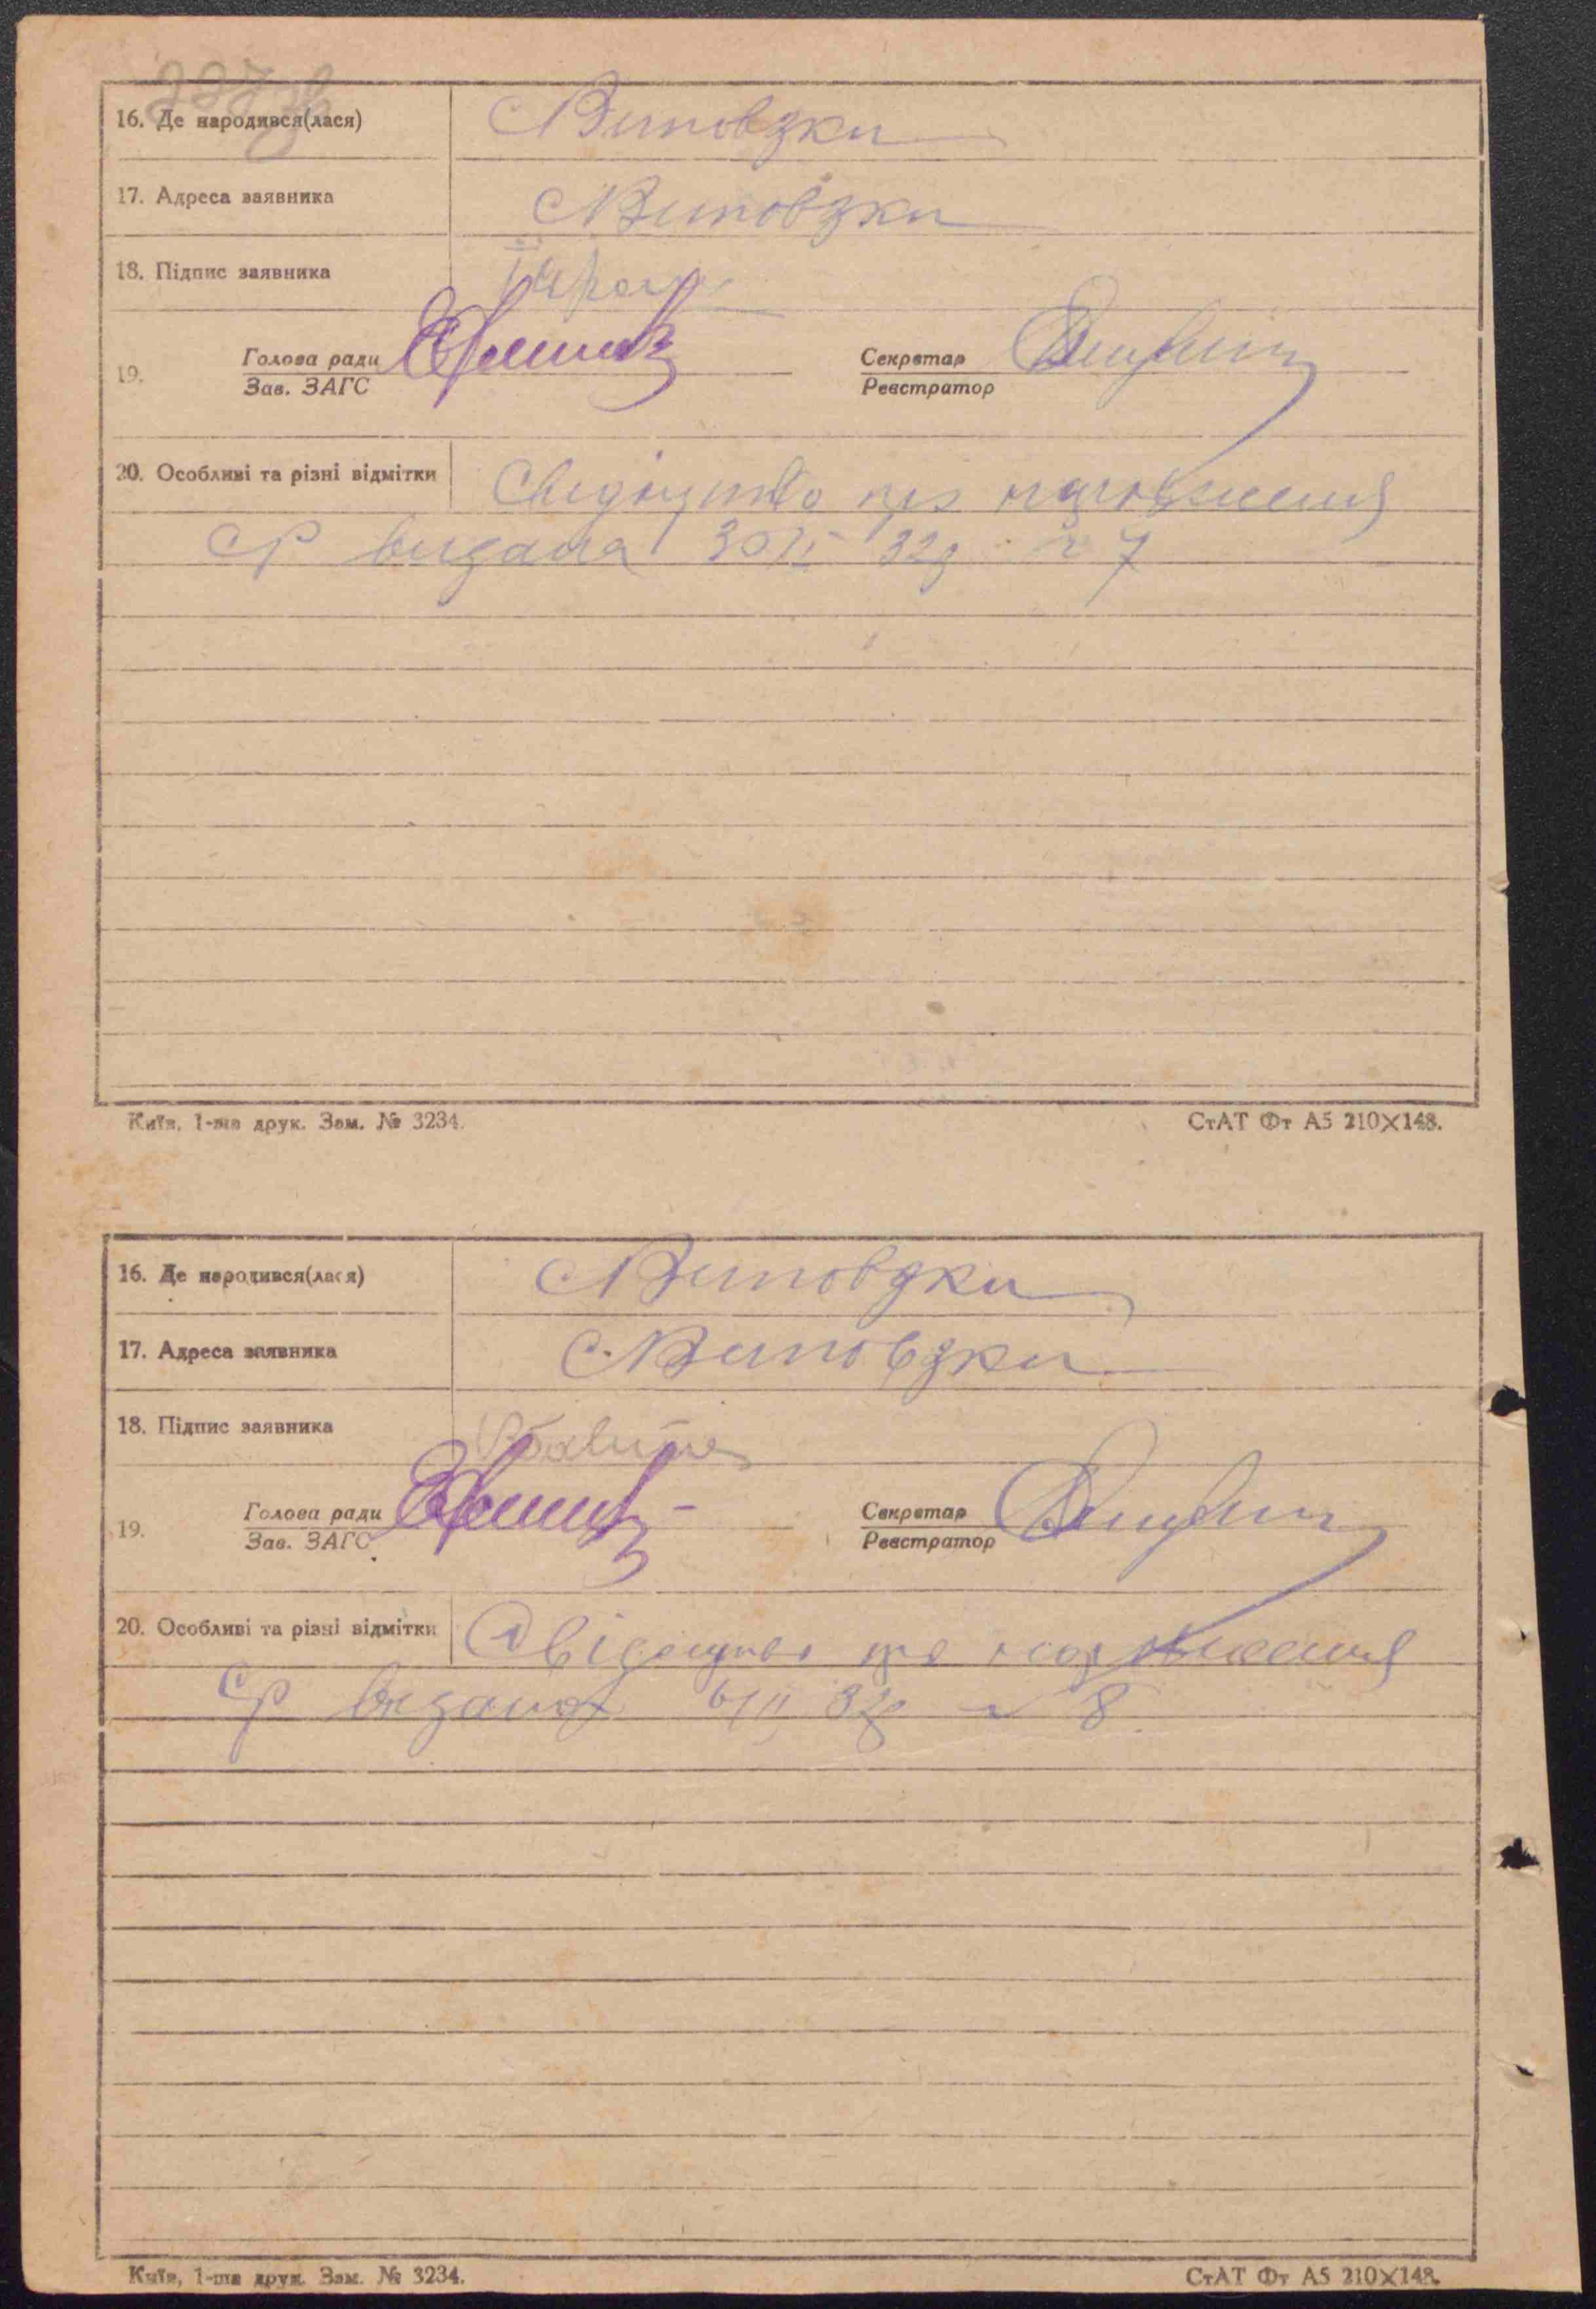 16. Де народився(лася) с Виповзки
17. Адреса заявника с Виповзки
18. Підпис заявника
19. Голова ради Секретар
Зав. ЗАГС Реєстратор
20. Особливі та різні відмітки Свидоцтво про народження
СР видана 30/ 32р 7
Київ, 1-ша друк. Зам. № 3234. СтАТ Фт А5 210×148.
16. Де народився(лася) с Виповзки
17. Адреса заявника с. Виповзки
18. Підпис заявника
19. Голова ради Секретар
Зав. ЗАГС Реєстратор
20. Особливі та різні відмітки Свідоцтво про народження
СР видана 6/II 32р 8
Київ, 1-ша друк. Зам. № 3234. СтАТ Фт А5 210×148.